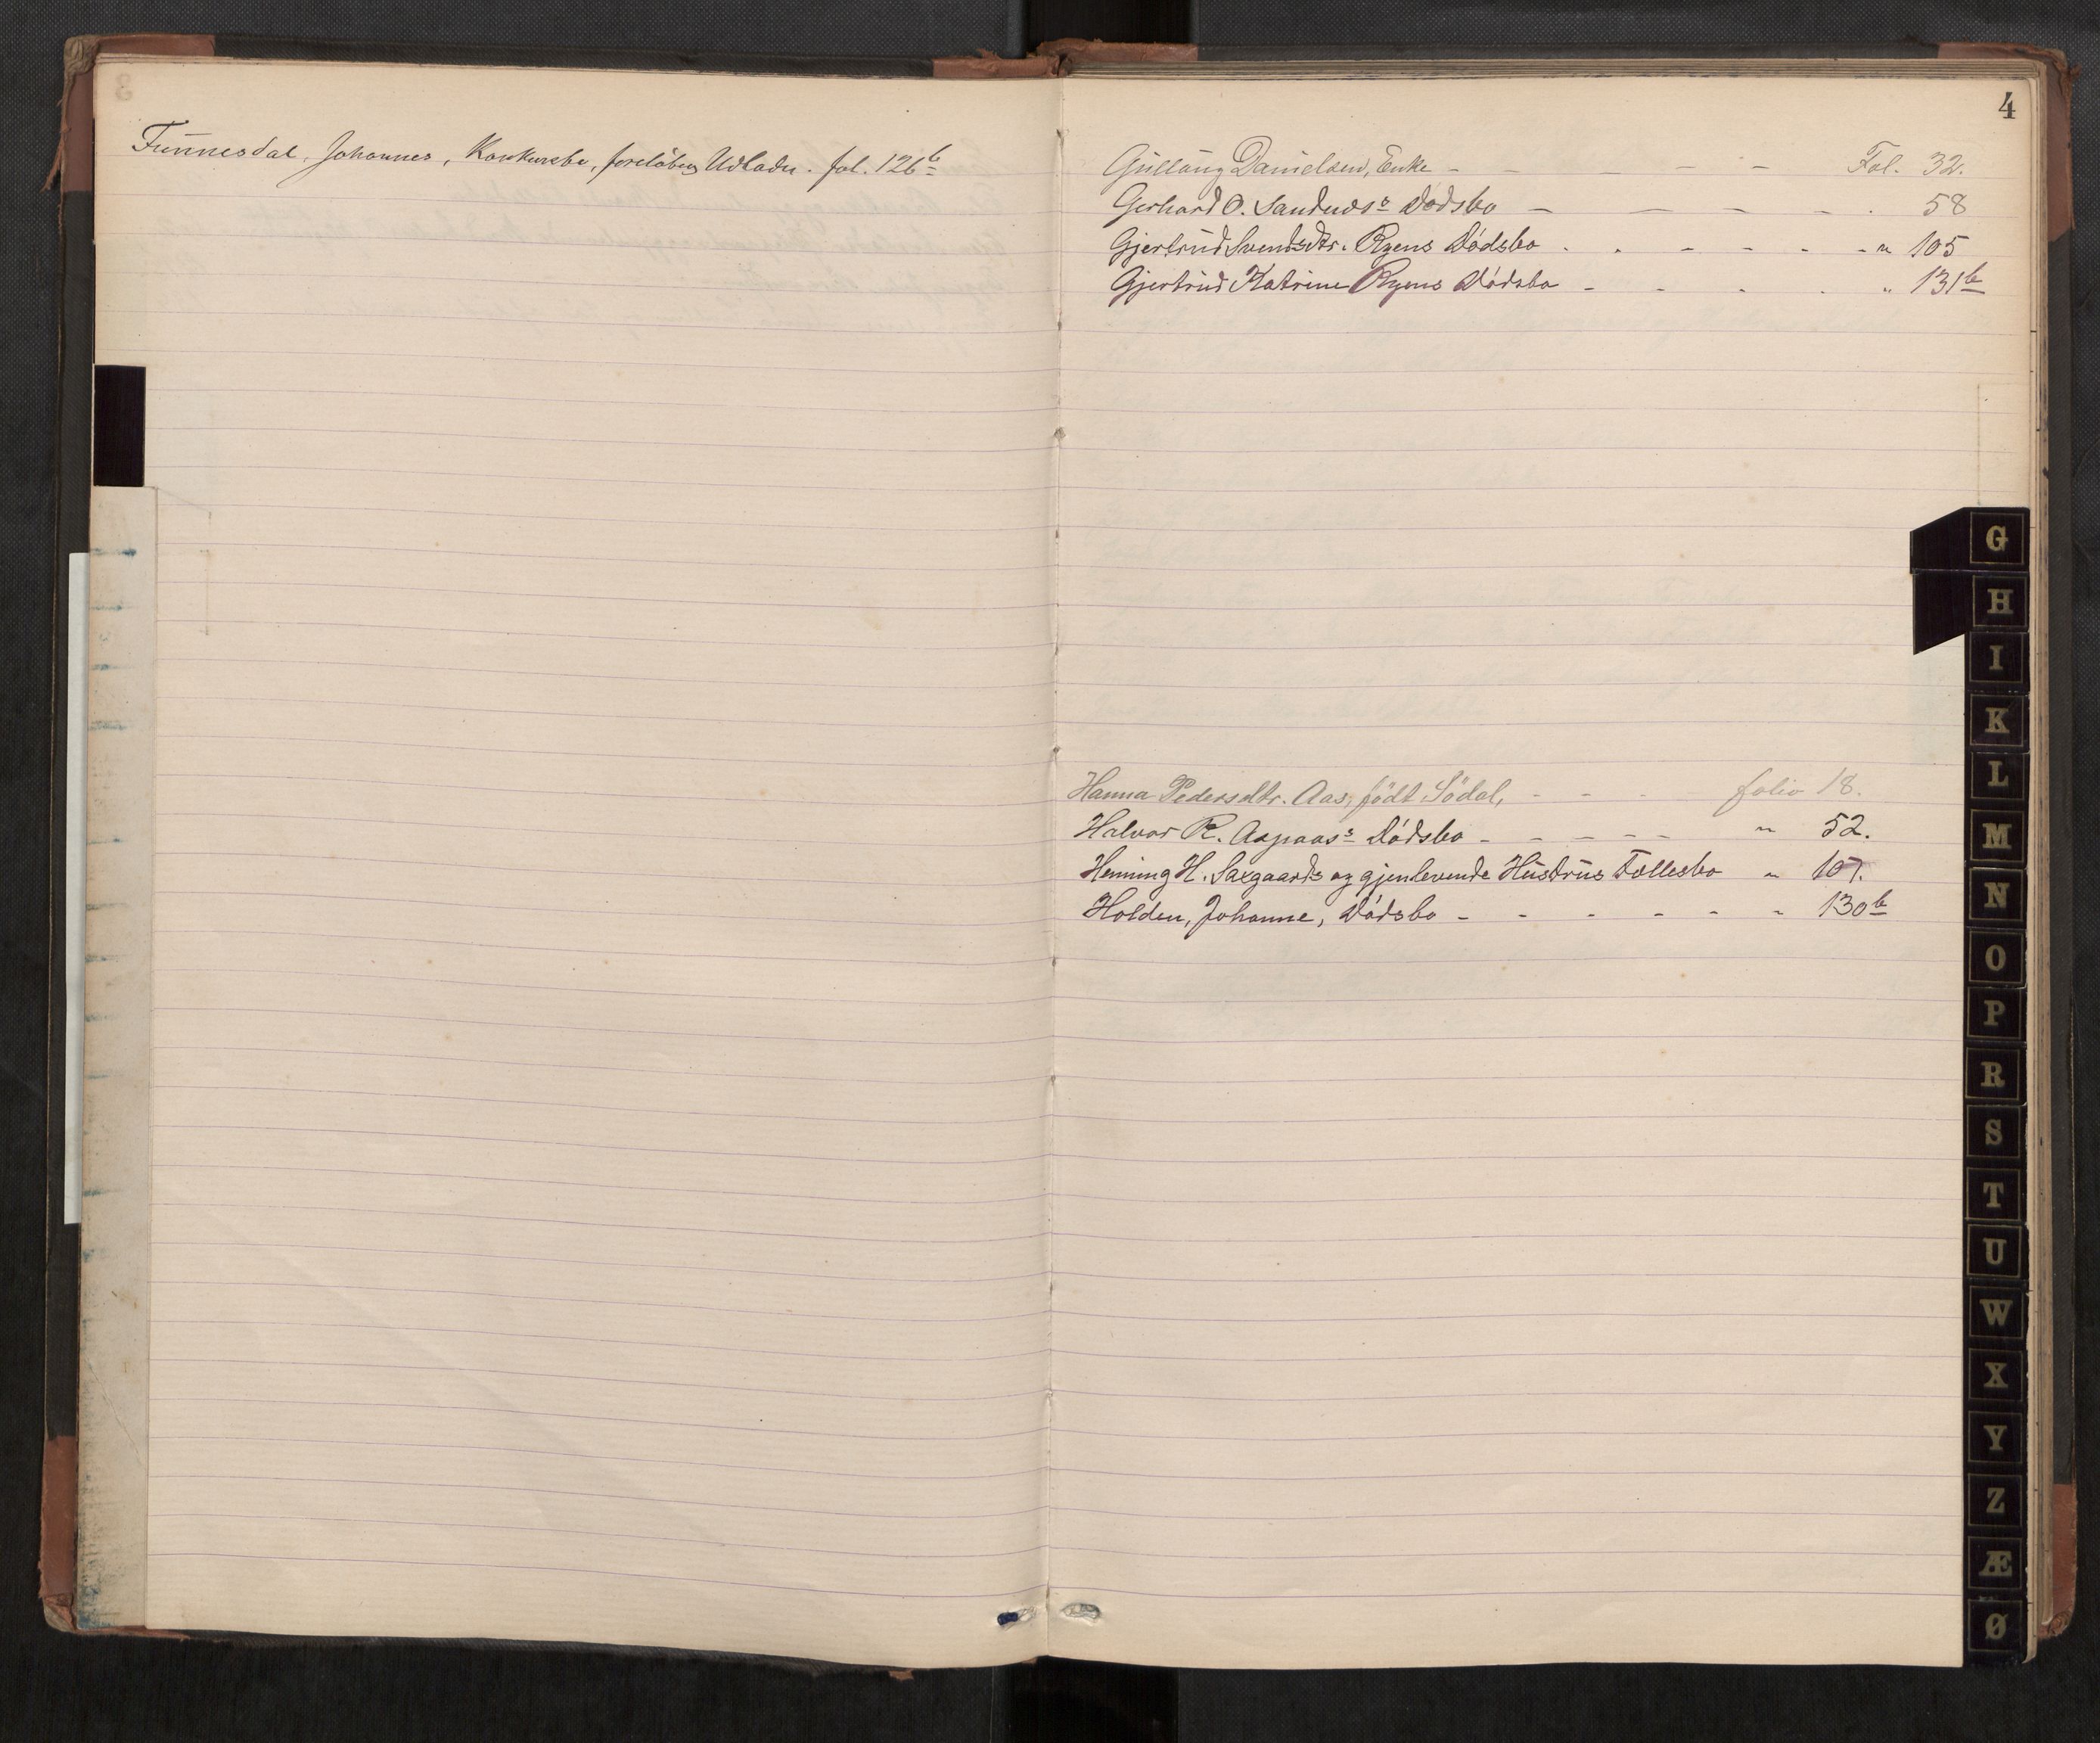 Funnesdal, Johannes, Konkursbo, foreløbig Udlodn. fol. 126b
4
Gullaug Danielsen, Enke - - - - - Fol. 32.
Gerhard O. Sandnæss Dødsbo - - - - . 58
Gjertrud Svendsdtr. Ryens Dødsbo - - - - - " 105
Gjertrud Katrine Ryens Dødsbo - - - - " 131b
G
H
I
K
L
M
N
O
P
R
S
T
U
W
X
Y
Z
Æ
Ø
Hanna Pedersdtr. Aas, født Sødal, - - - folio 18.
Halvor R. Aspaas's Dødsbo - - - - - " 52.
Henning H. Saxgaards og gjenlevende Hustrus Fællesbo " 107.
Holden, Johanne, Dødsbo - - - - - " 130b